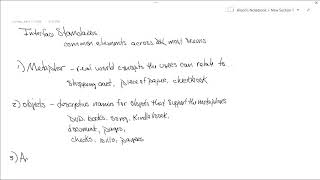 Interface Standards
common elements across all most screens
1) Metaphor - real world concepts the users can relate to
shopping cart, piece of paper, checkbook
2) objects - descriptive names for objects that support the metaphors
DVD, books, song, Kindle book
document, pages,
checks, bills, payees
3) A